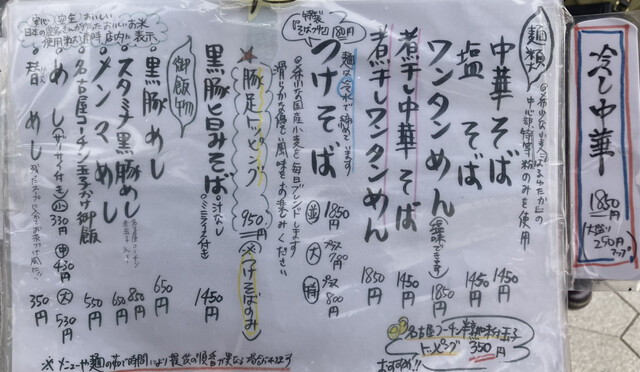 冷し中華
1850円
大盛り
250円
アップ
麺類
○希少な小麦「はるゆたか」の
中心部、特等粉のみを使用
中華そば 1450円
塩そば 1450円
ワンタンめん(塩味できます) 1850円
煮干し中華そば 1450円
煮干しワンタンめん 1850円
特製
『そばつゆ』
つけそば
麺は冷水で締めています
並 1850円
大 プラス
800円
○希少な国産小麦を毎日ブレンドします
滑らかな食感と風味をお楽しみください
★豚足トッピング 950円(※つけそばのみ)
黒豚旨みそば。汁なし
1450円
御飯物
黒豚めし 650円
スタミナ黒豚めし 850円
メンマめし 650円
名古屋コーチン玉子かけ御飯 550円
めし(ザーサイ付き)
小 330円
中 430円
大 530円
替めし 350円
安心安全おいしい
日本の農家さんが作ったおいしいお米
使用
店内に表示
名古屋コーチン半熟味付玉子
トッピング 350円
おすすめ!!
※メニューや麺の